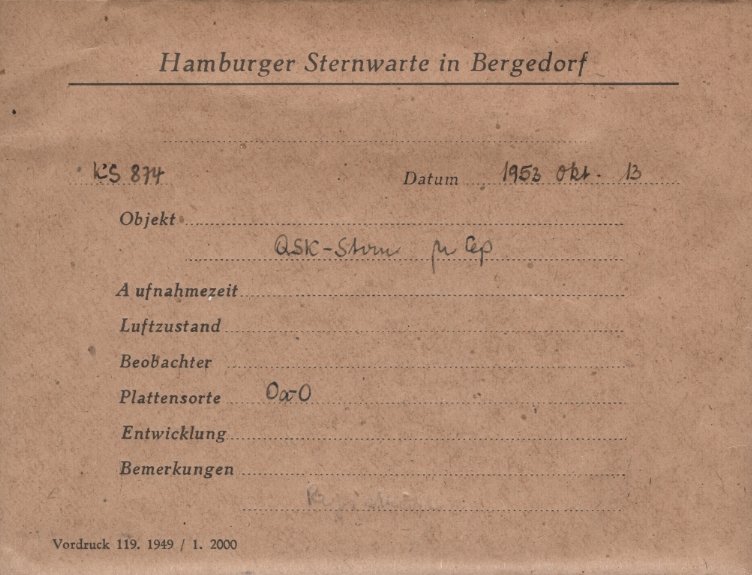 Hamburger Sternwarte in Bergedorf
KS 874 Datum 1953 Okt. 13
Objekt
QSK-Sterne μ Cep
Aufnahmezeit
Luftzustand
Beobachter
Plattensorte OaO
Entwicklung
Bemerkungen
Vordruck 119. 1949 / 1. 2000